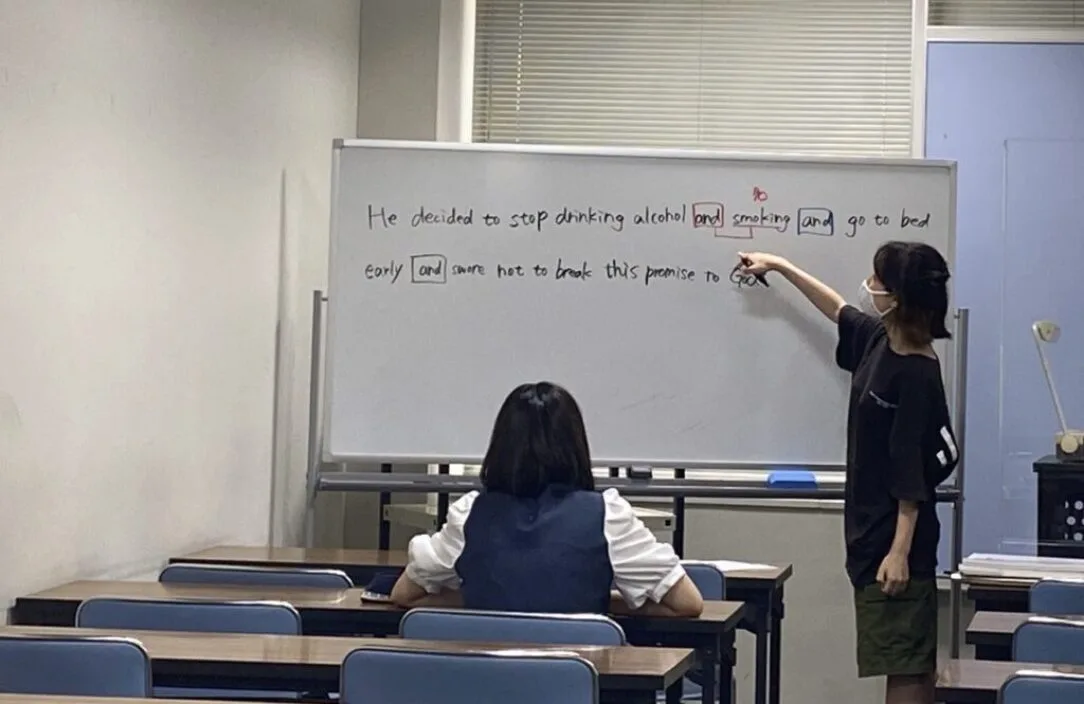 He decided to stop drinking alcohol and smoking and go to bed
early and swore not to break this promise to God